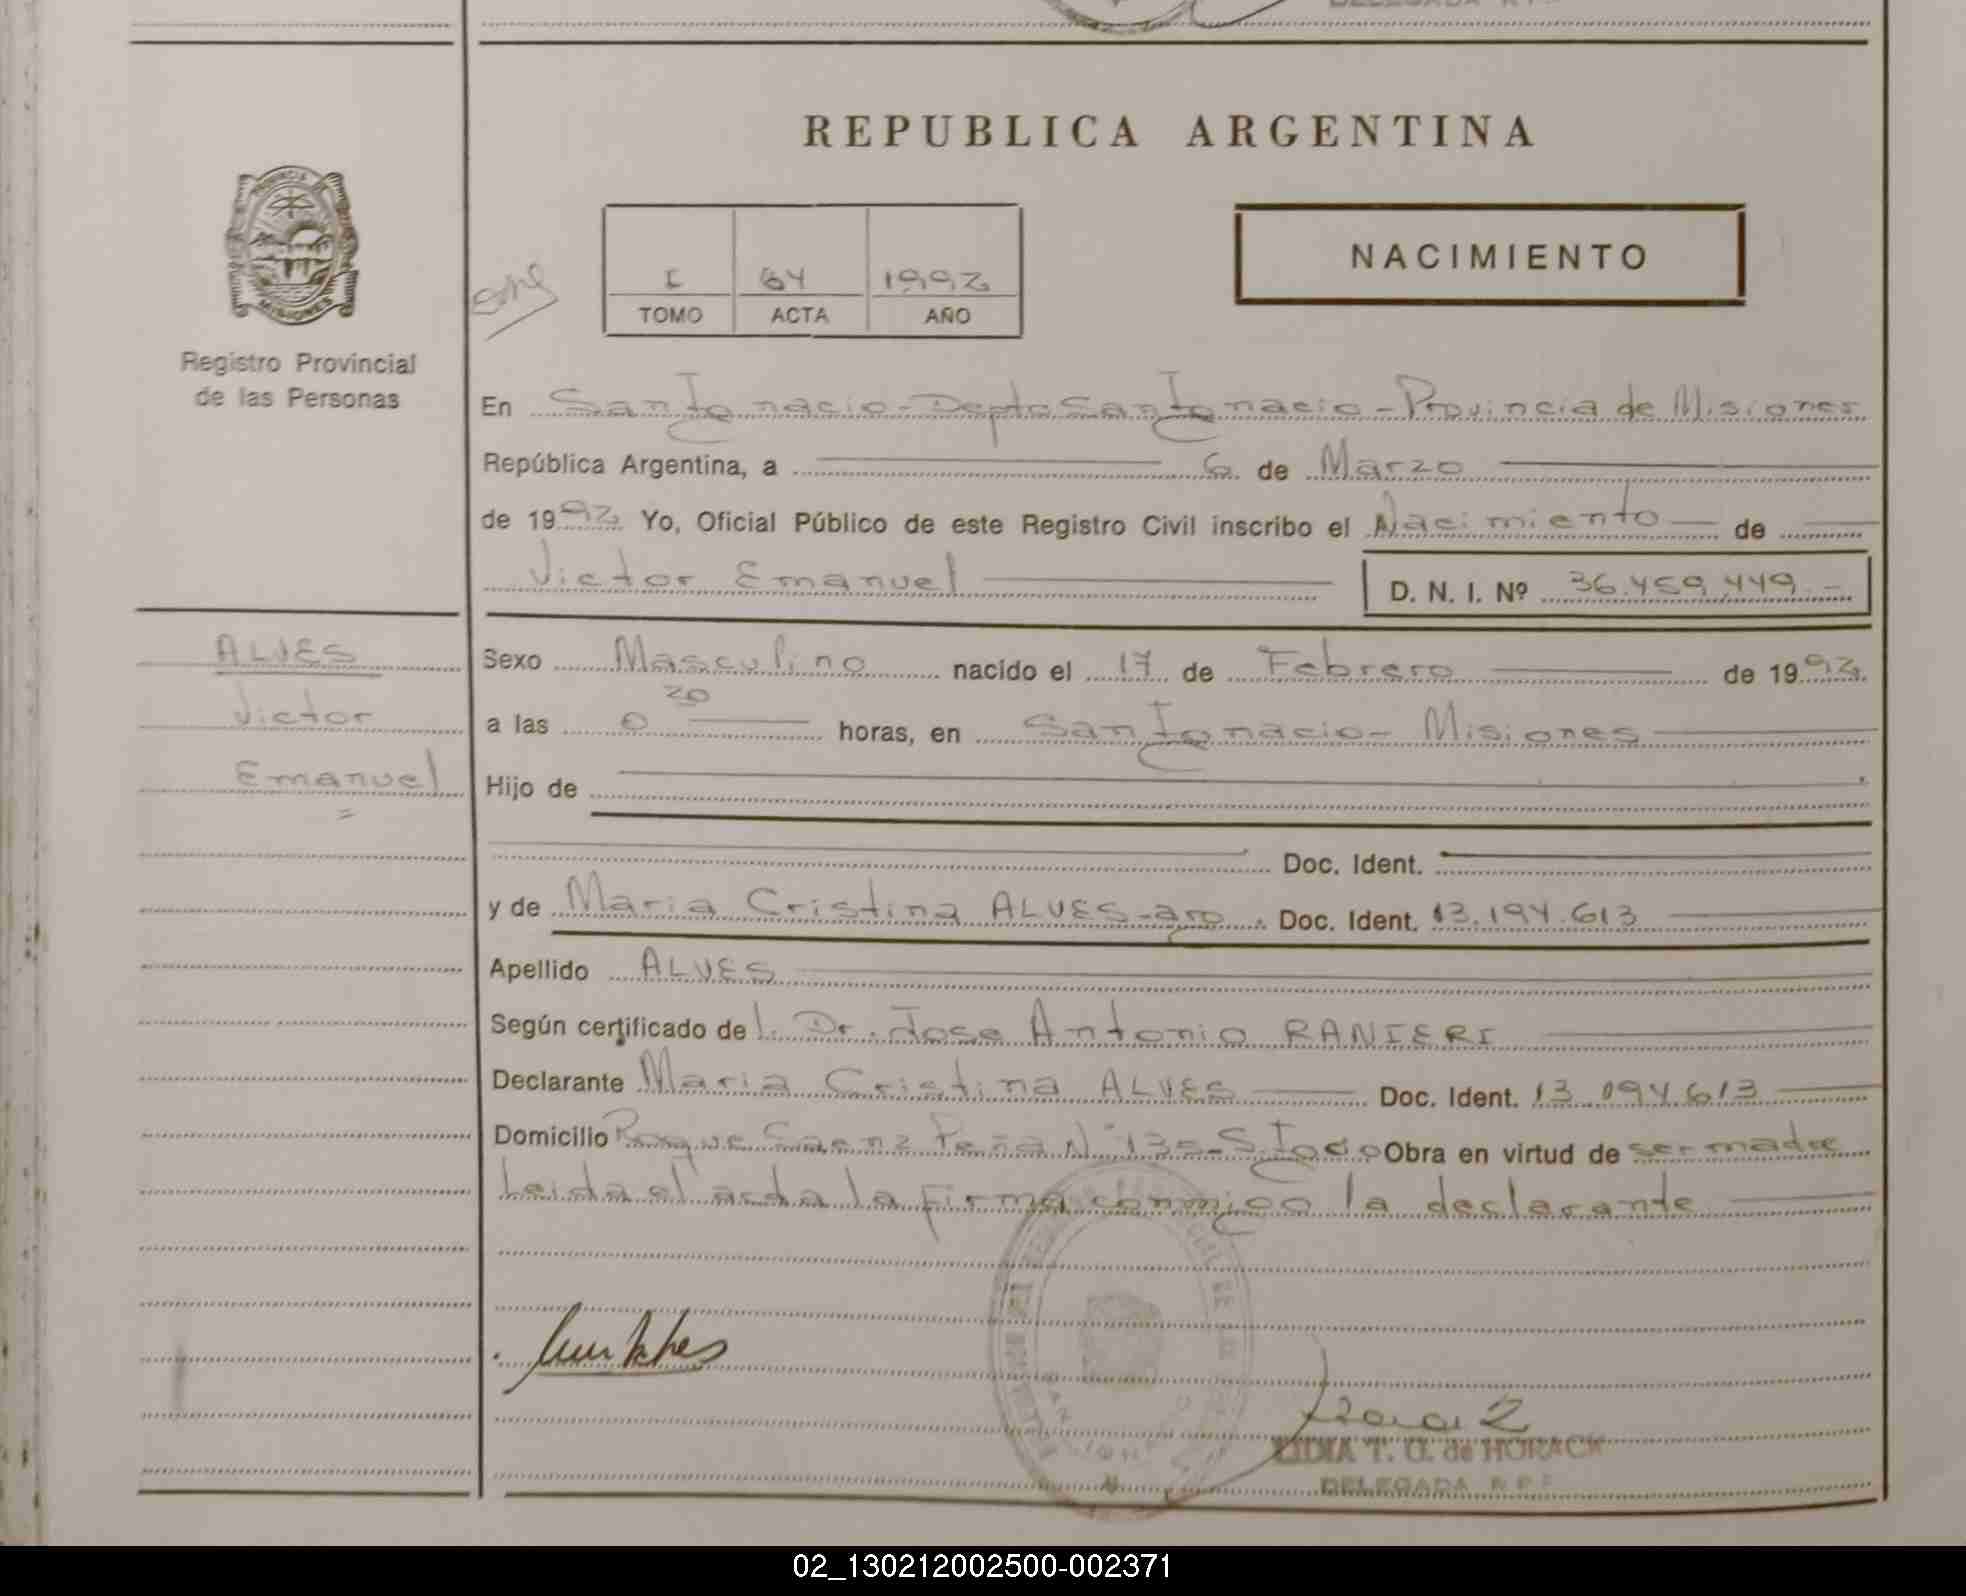 REPUBLICA ARGENTINA
PROVINCIA DE
MISIONES
Registro Provincial
de las Personas
NACIMIENTO
I 64 1992
TOMO ACTA AÑO
En San Ignacio - Depto San Ignacio - Provincia de Misiones
República Argentina, a 6 de Marzo
de 1992 Yo, Oficial Público de este Registro Civil inscribo el Nacimiento de
Victor Emanuel D. N. I. Nº 36.459.449.-
ALVES
Victor
Emanuel
Sexo Masculino nacido el 17 de Febrero de 1992
a las 0 20 horas, en San Ignacio - Misiones
Hijo de
Doc. Ident.
y de Maria Cristina ALVES - arg. Doc. Ident. 13.194.613
Apellido ALVES
Según certificado del Dr. Jose Antonio RANIERI
Declarante Maria Cristina ALVES Doc. Ident. 13.194.613
Domicilio Roque Saenz Peña Nº 135 - S. Igcio Obra en virtud de ser madre
Leida el acta la firma conmigo la declarante
LIDIA T. U. de HORACK
DELEGADA R P P
02_130212002500-002371